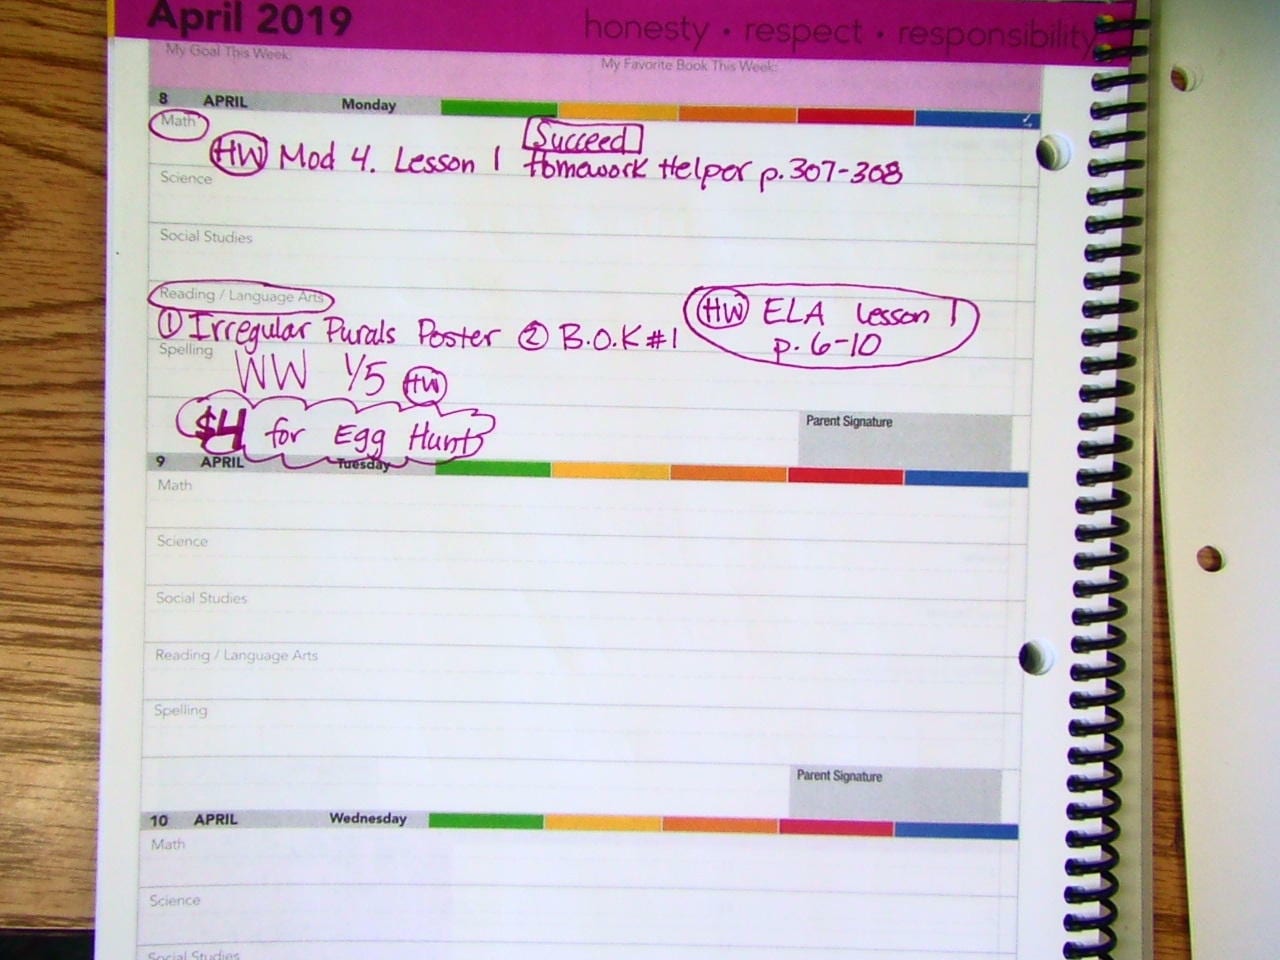 April 2019 honesty • respect • responsibility
My Goal This Week: My Favorite Book This Week:
8 APRIL Monday
Math
Succeed
HW Mod 4. Lesson 1 Homework Helper p.307-308
Science
Social Studies
Reading / Language Arts
① Irregular Purals Poster ② B.O.K #1
HW ELA Lesson 1
p. 6-10
Spelling
WW 1/5 HW
$4 for Egg Hunt
Parent Signature
9 APRIL Tuesday
Math
Science
Social Studies
Reading / Language Arts
Spelling
Parent Signature
10 APRIL Wednesday
Math
Science
Social Studies